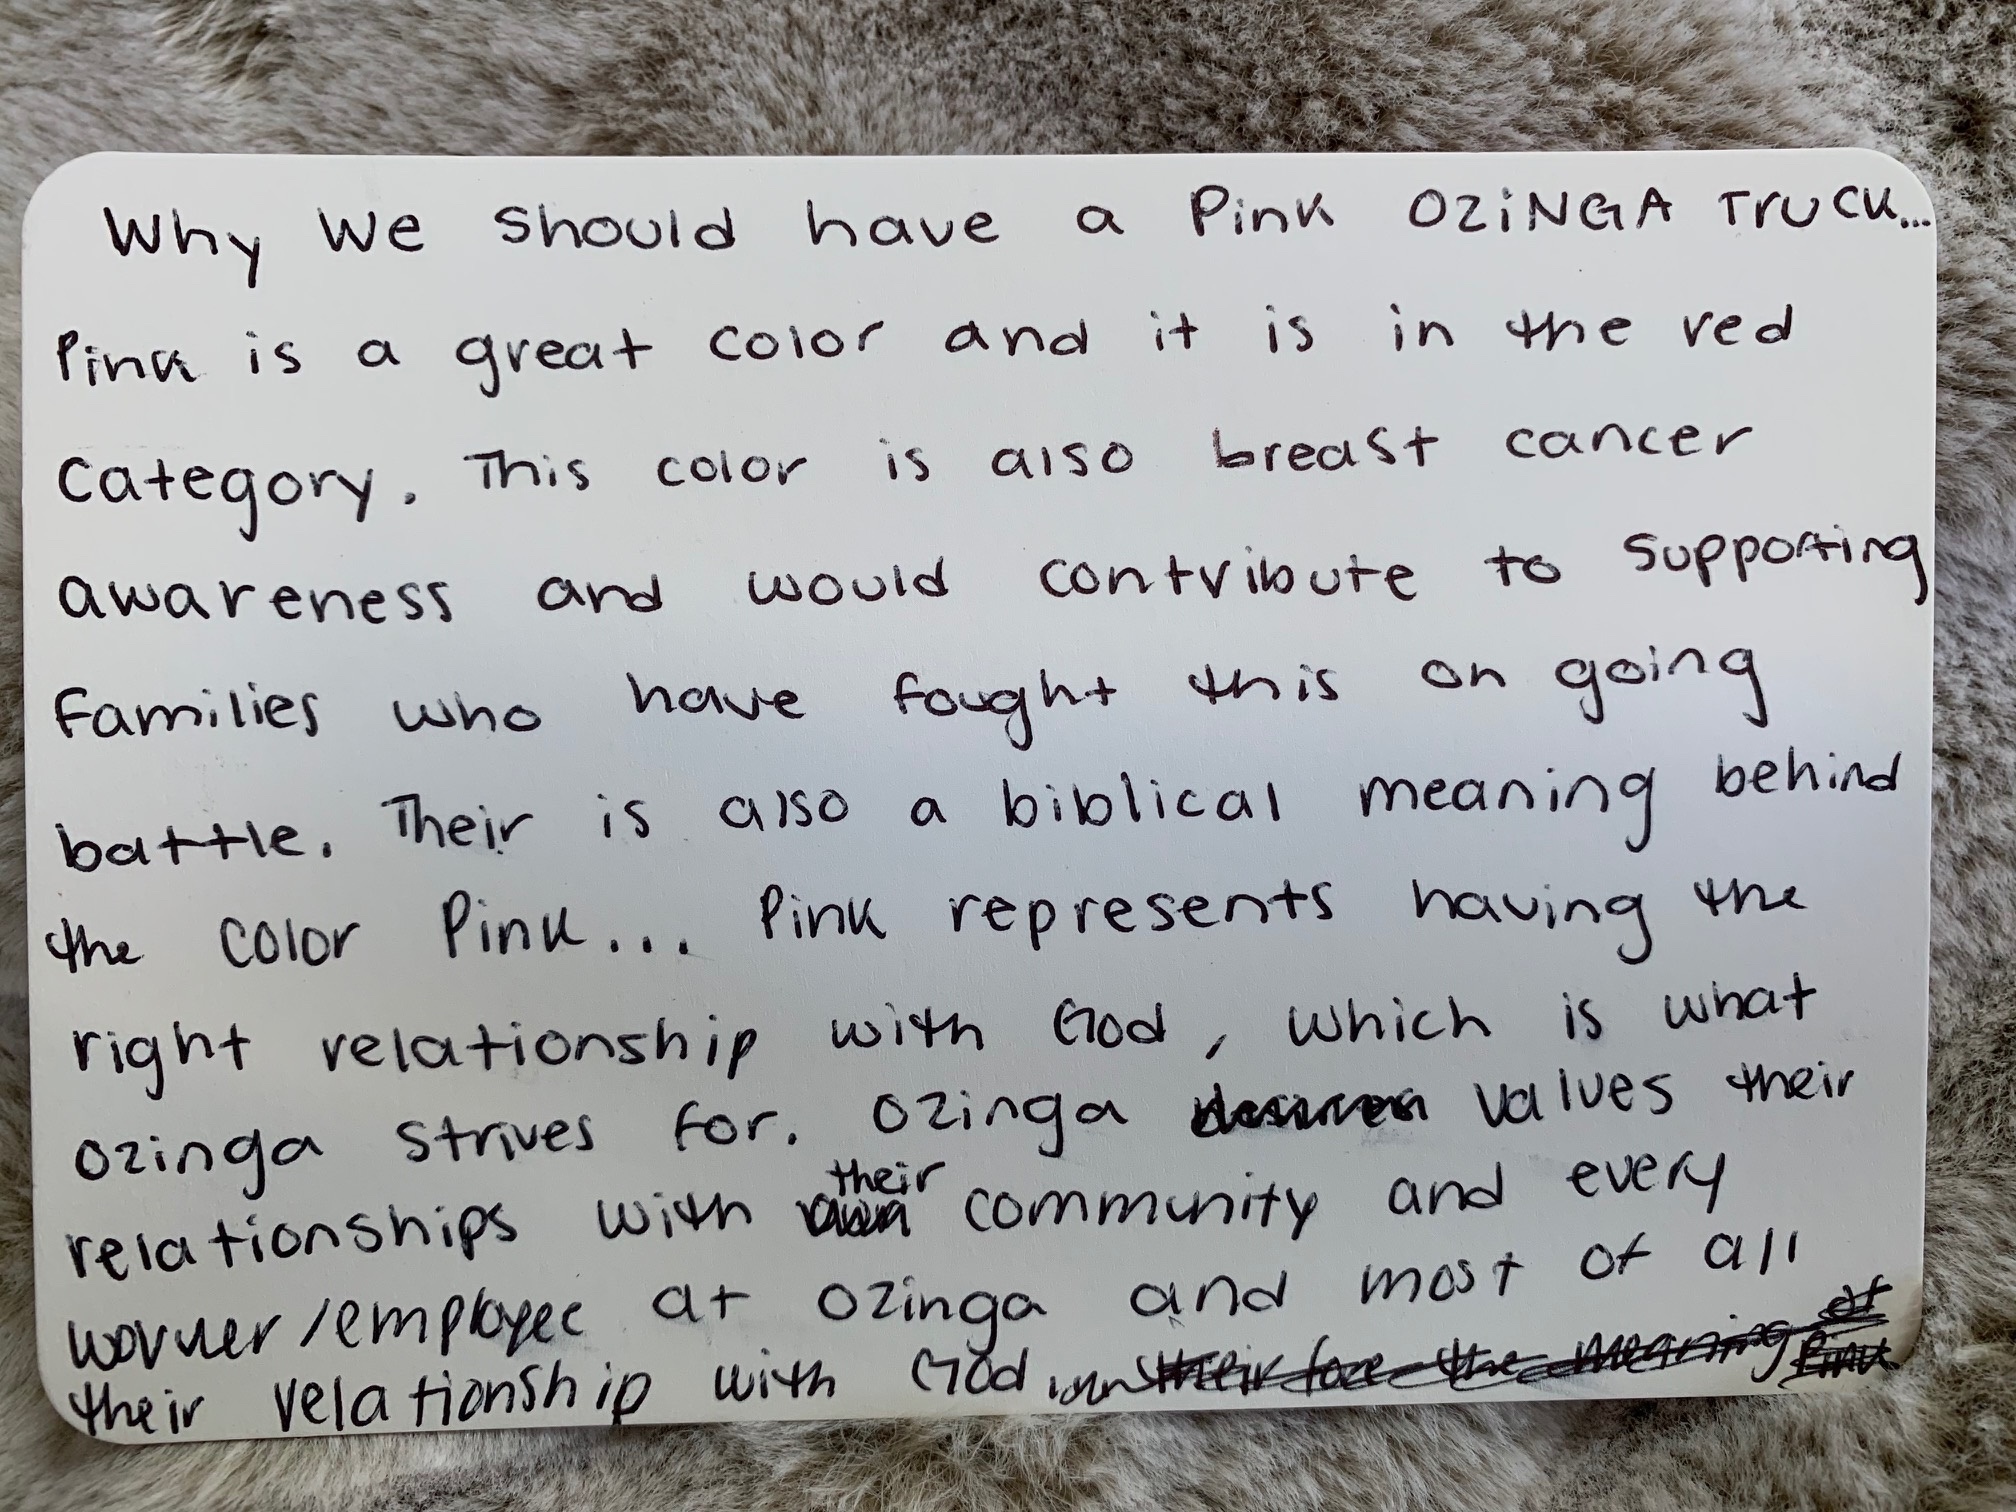 Why We Should have a Pink OZiNGA TRUCK...
Pink is a great color and it is in the red
Category. This color is also breast cancer
awareness and would contribute to supporting
families who have fought this on going
battle. Their is also a biblical meaning behind
the color Pink... Pink represents having the
right relationship with God, which is what
Ozinga strives for. Ozinga values their
relationships with their community and every
worker/employee at Ozinga and most of all
their relationship with God.